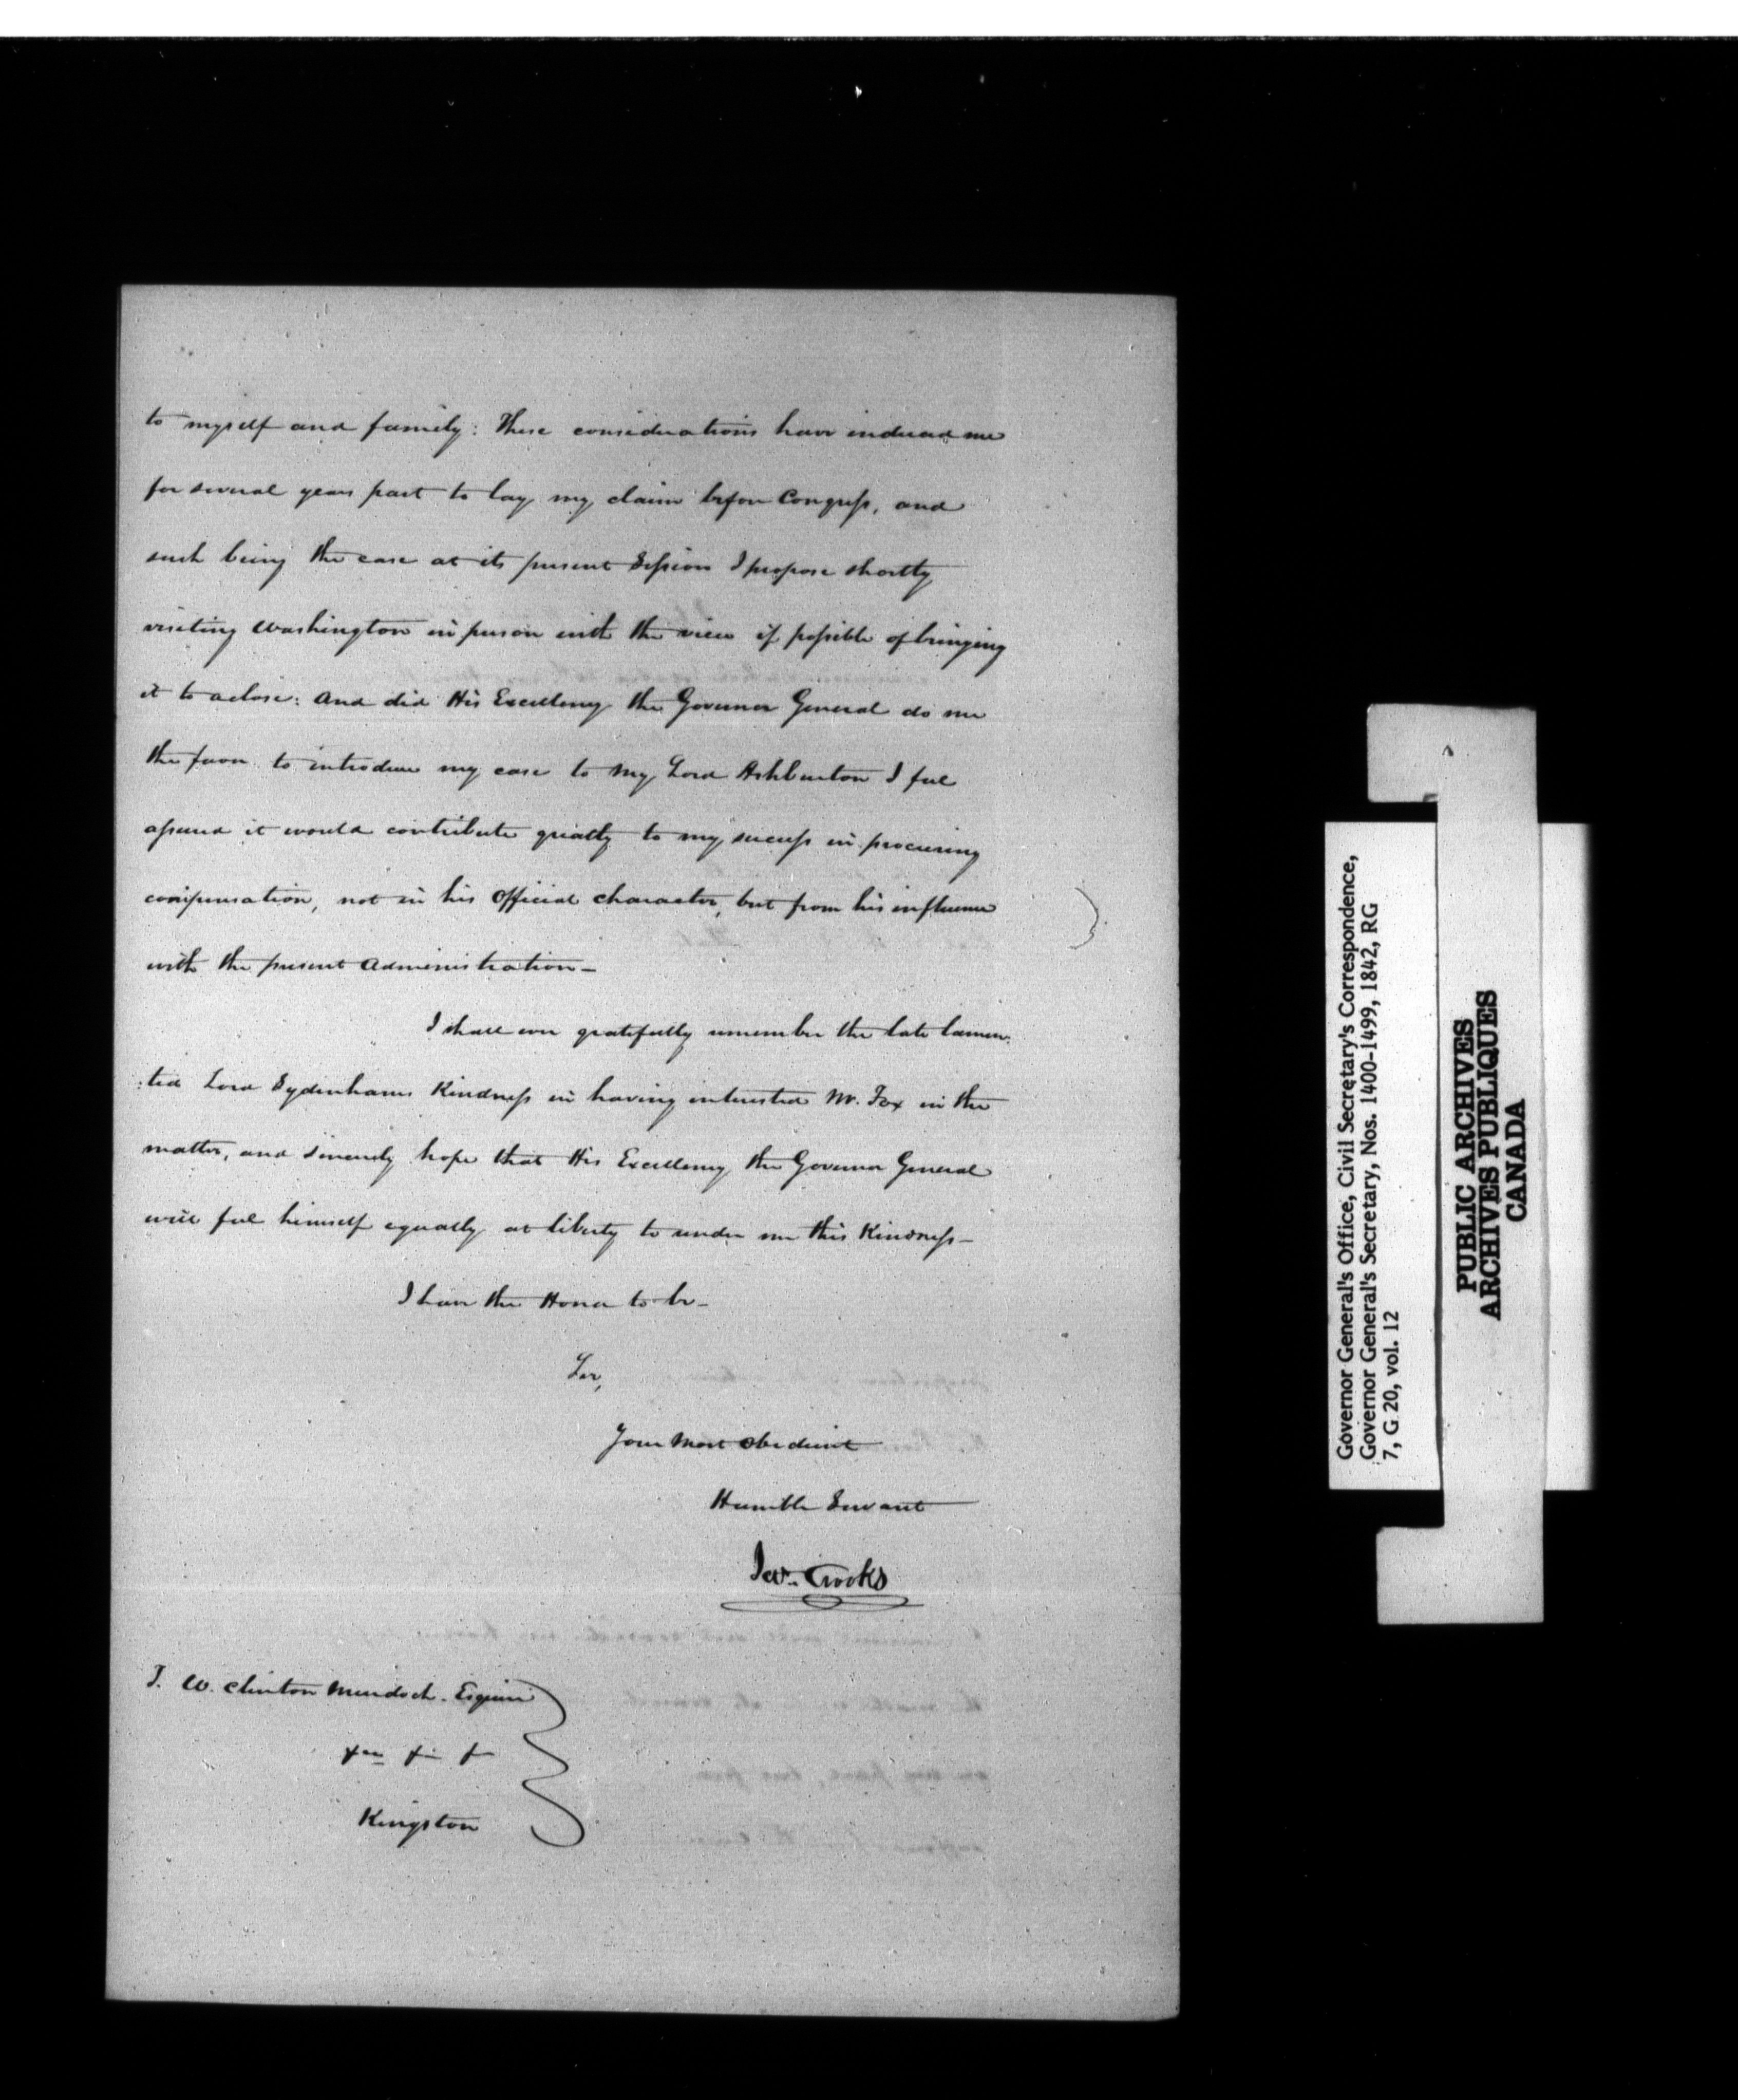 to myself and family: These considerations have induced me
for several years past to lay my claim before Congress, and
such being the case at its present Session I propose shortly
visiting Washington in person with the view if possible of bringing
it to a close: And did His Excellency the Governor General do me
the favor to introduce my case to my Lord Ashburton I feel
assured it would contribute greatly to my success in procuring
compensation, not in his Official character, but from his influence
with the present Administration—
I shall ever gratefully remember the late lamen:
:ted Lord Sydenhams Kindness in having interested Mr. Fox in the
matter, and sincerely hope that His Excellency the Governor General
will feel himself equally at liberty to render me this Kindness—
I have the Honor to be—
Sir,
Your Most Obedient
Humble Servant
Jas. Crooks
T. W. Clinton Murdoch. Esquire
Kingston
Governor General's Office, Civil Secretary's Correspondence,
Governor General's Secretary, Nos. 1400-1499, 1842, RG
7, G 20, vol. 12
PUBLIC ARCHIVES
ARCHIVES PUBLIQUES
CANADA